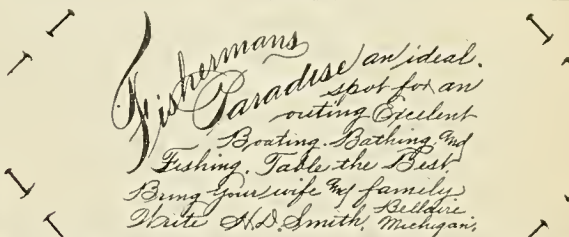 Fishermans
Paradise an ideal.
spot for an
outing Excelent
Boating. Bathing and
Fishing. Table the Best.
Bring your wife and family
Write H.D. Smith, Bellaire
Michigan.